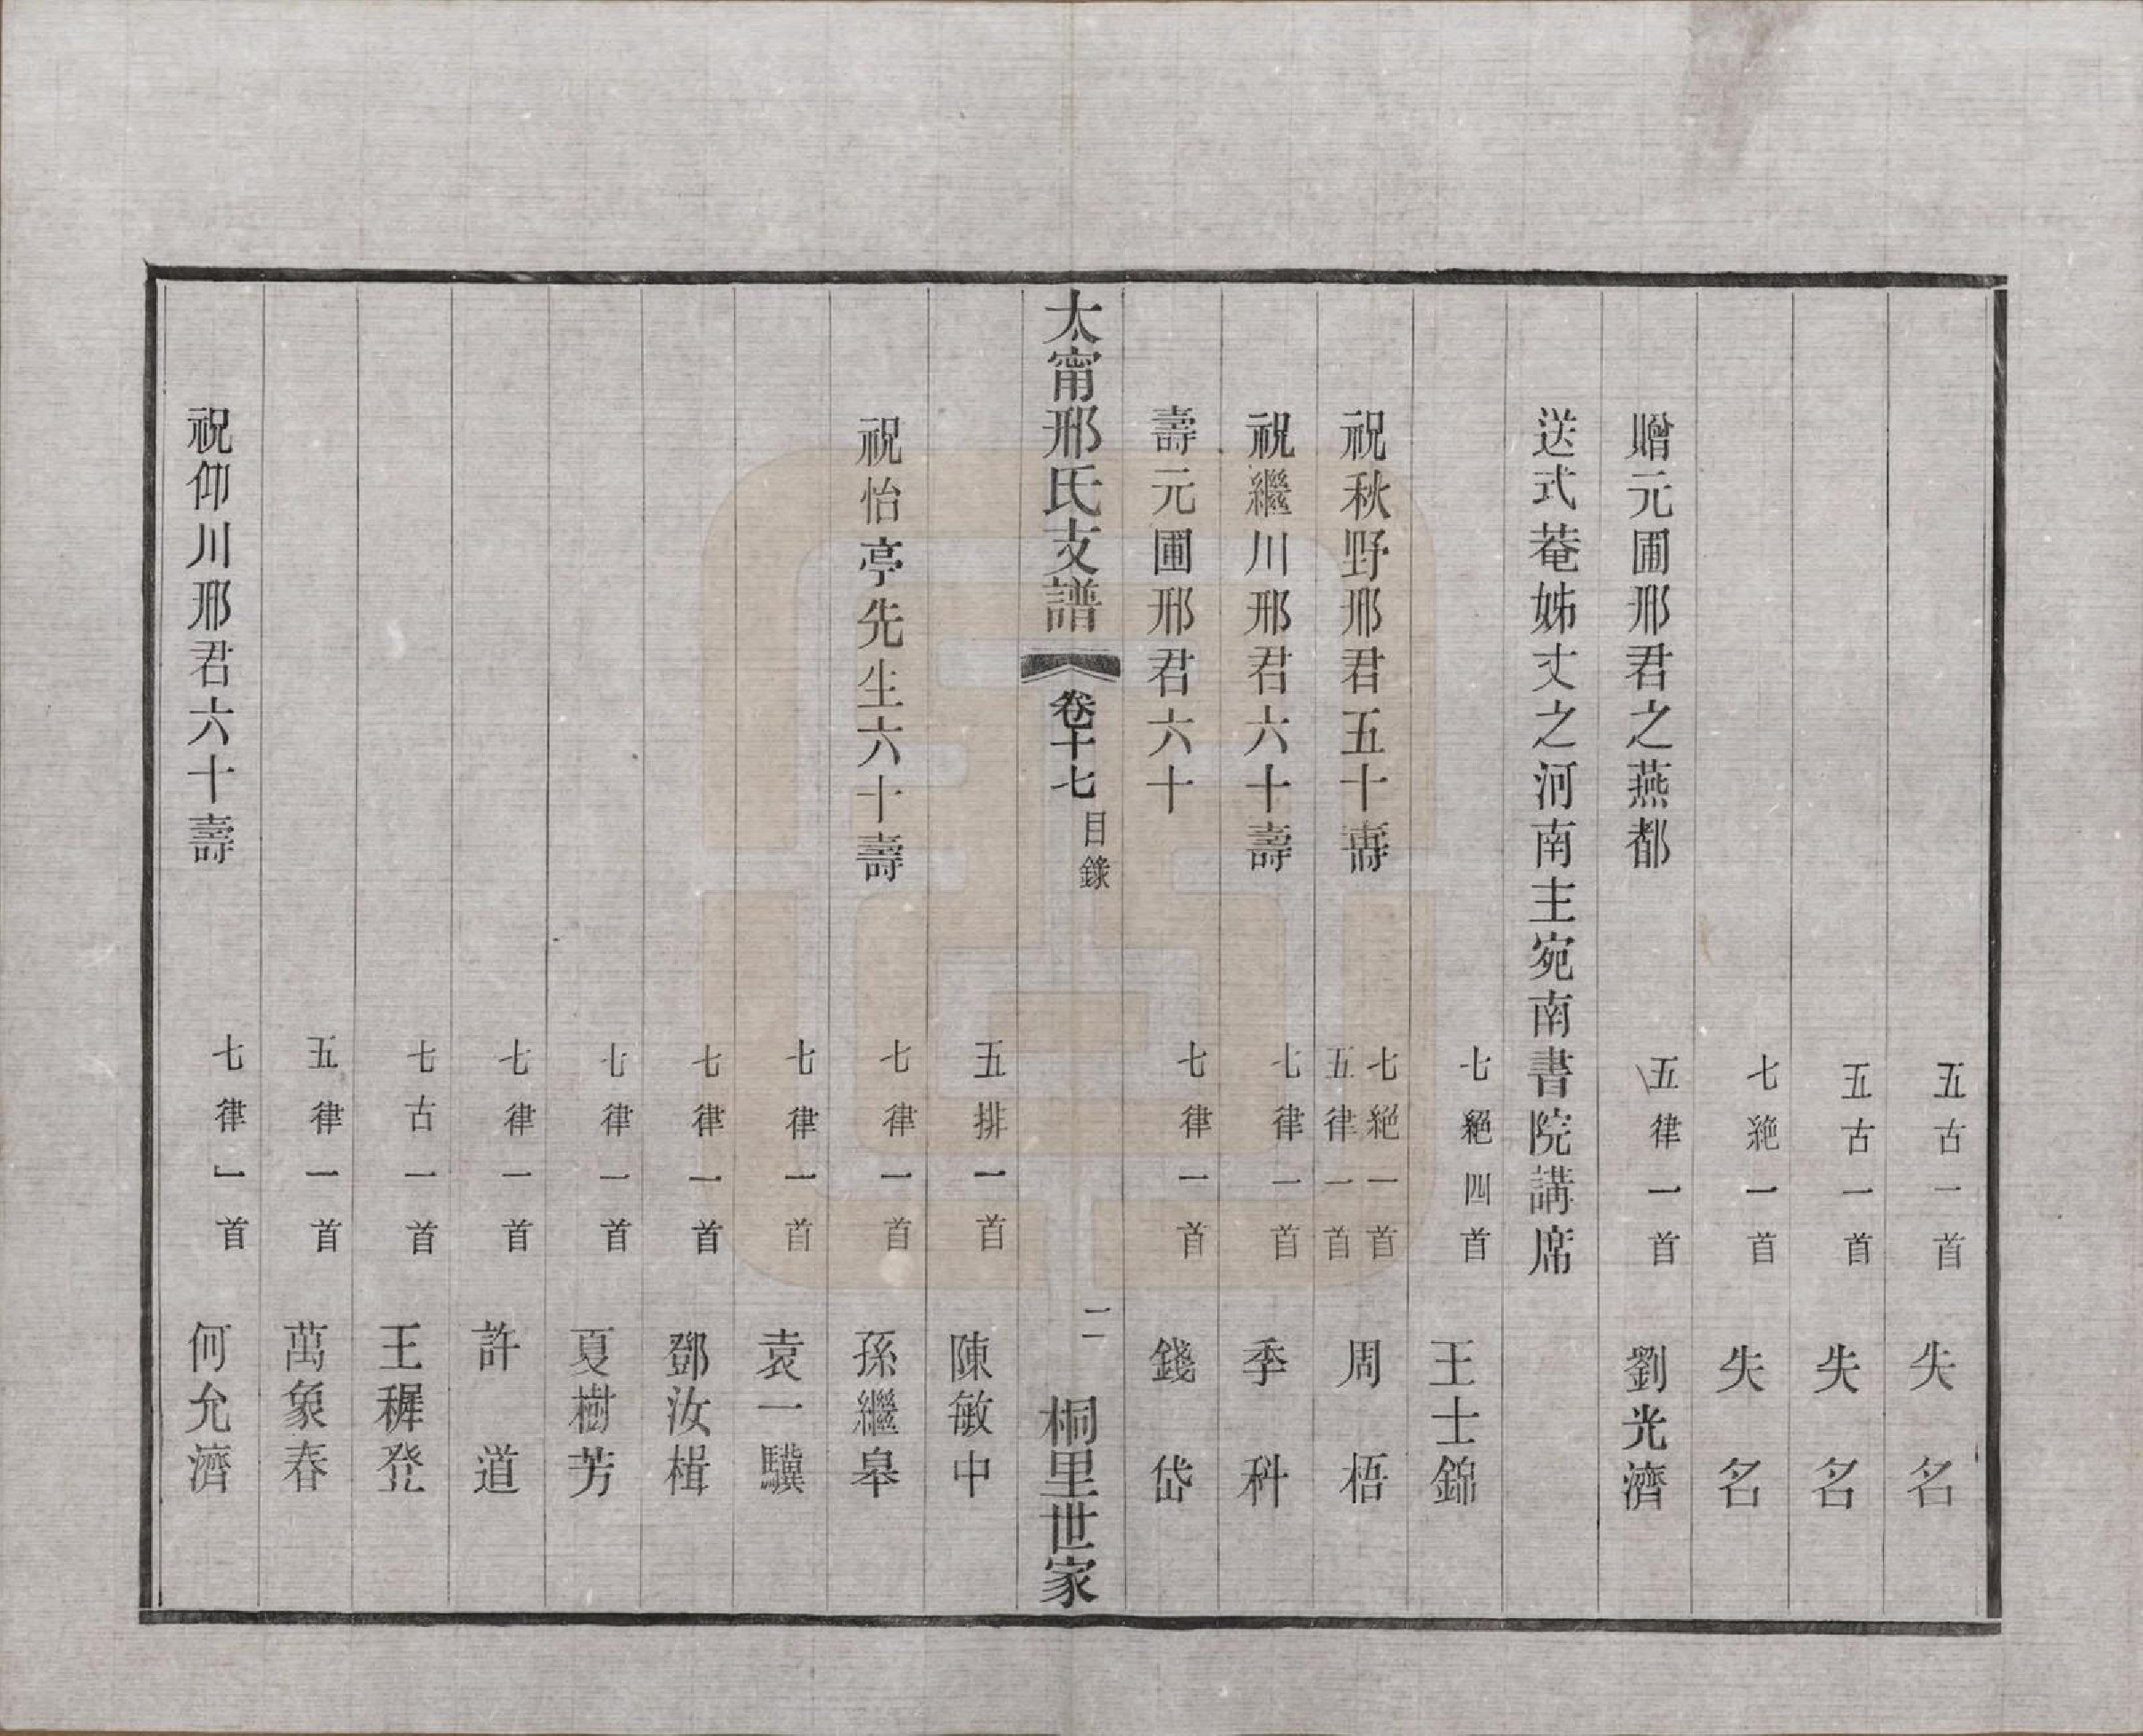 五古一首 失名
五古一首 失名
七絕一首 失名
贈元圃邢君之燕都 五律一首 劉光濟
送式菴姊丈之河南主宛南書院講席
七絕四首 王士錦
祝秋野邢君五十壽 七絕一首 五律一首 周梧
祝繼川邢君六十壽 七律一首 季科
壽元圃邢君六十 七律一首 錢岱
太甯邢氏支譜 卷十七 目錄 二 桐里世家
五排一首 陳敏中
祝怡亭先生六十壽 七律一首 孫繼皋
七律一首 袁一驥
七律一首 鄧汝楫
七律一首 夏樹芳
七律一首 許道
七古一首 王穉登
五律一首 萬象春
祝仰川邢君六十壽 七律一首 何允濟